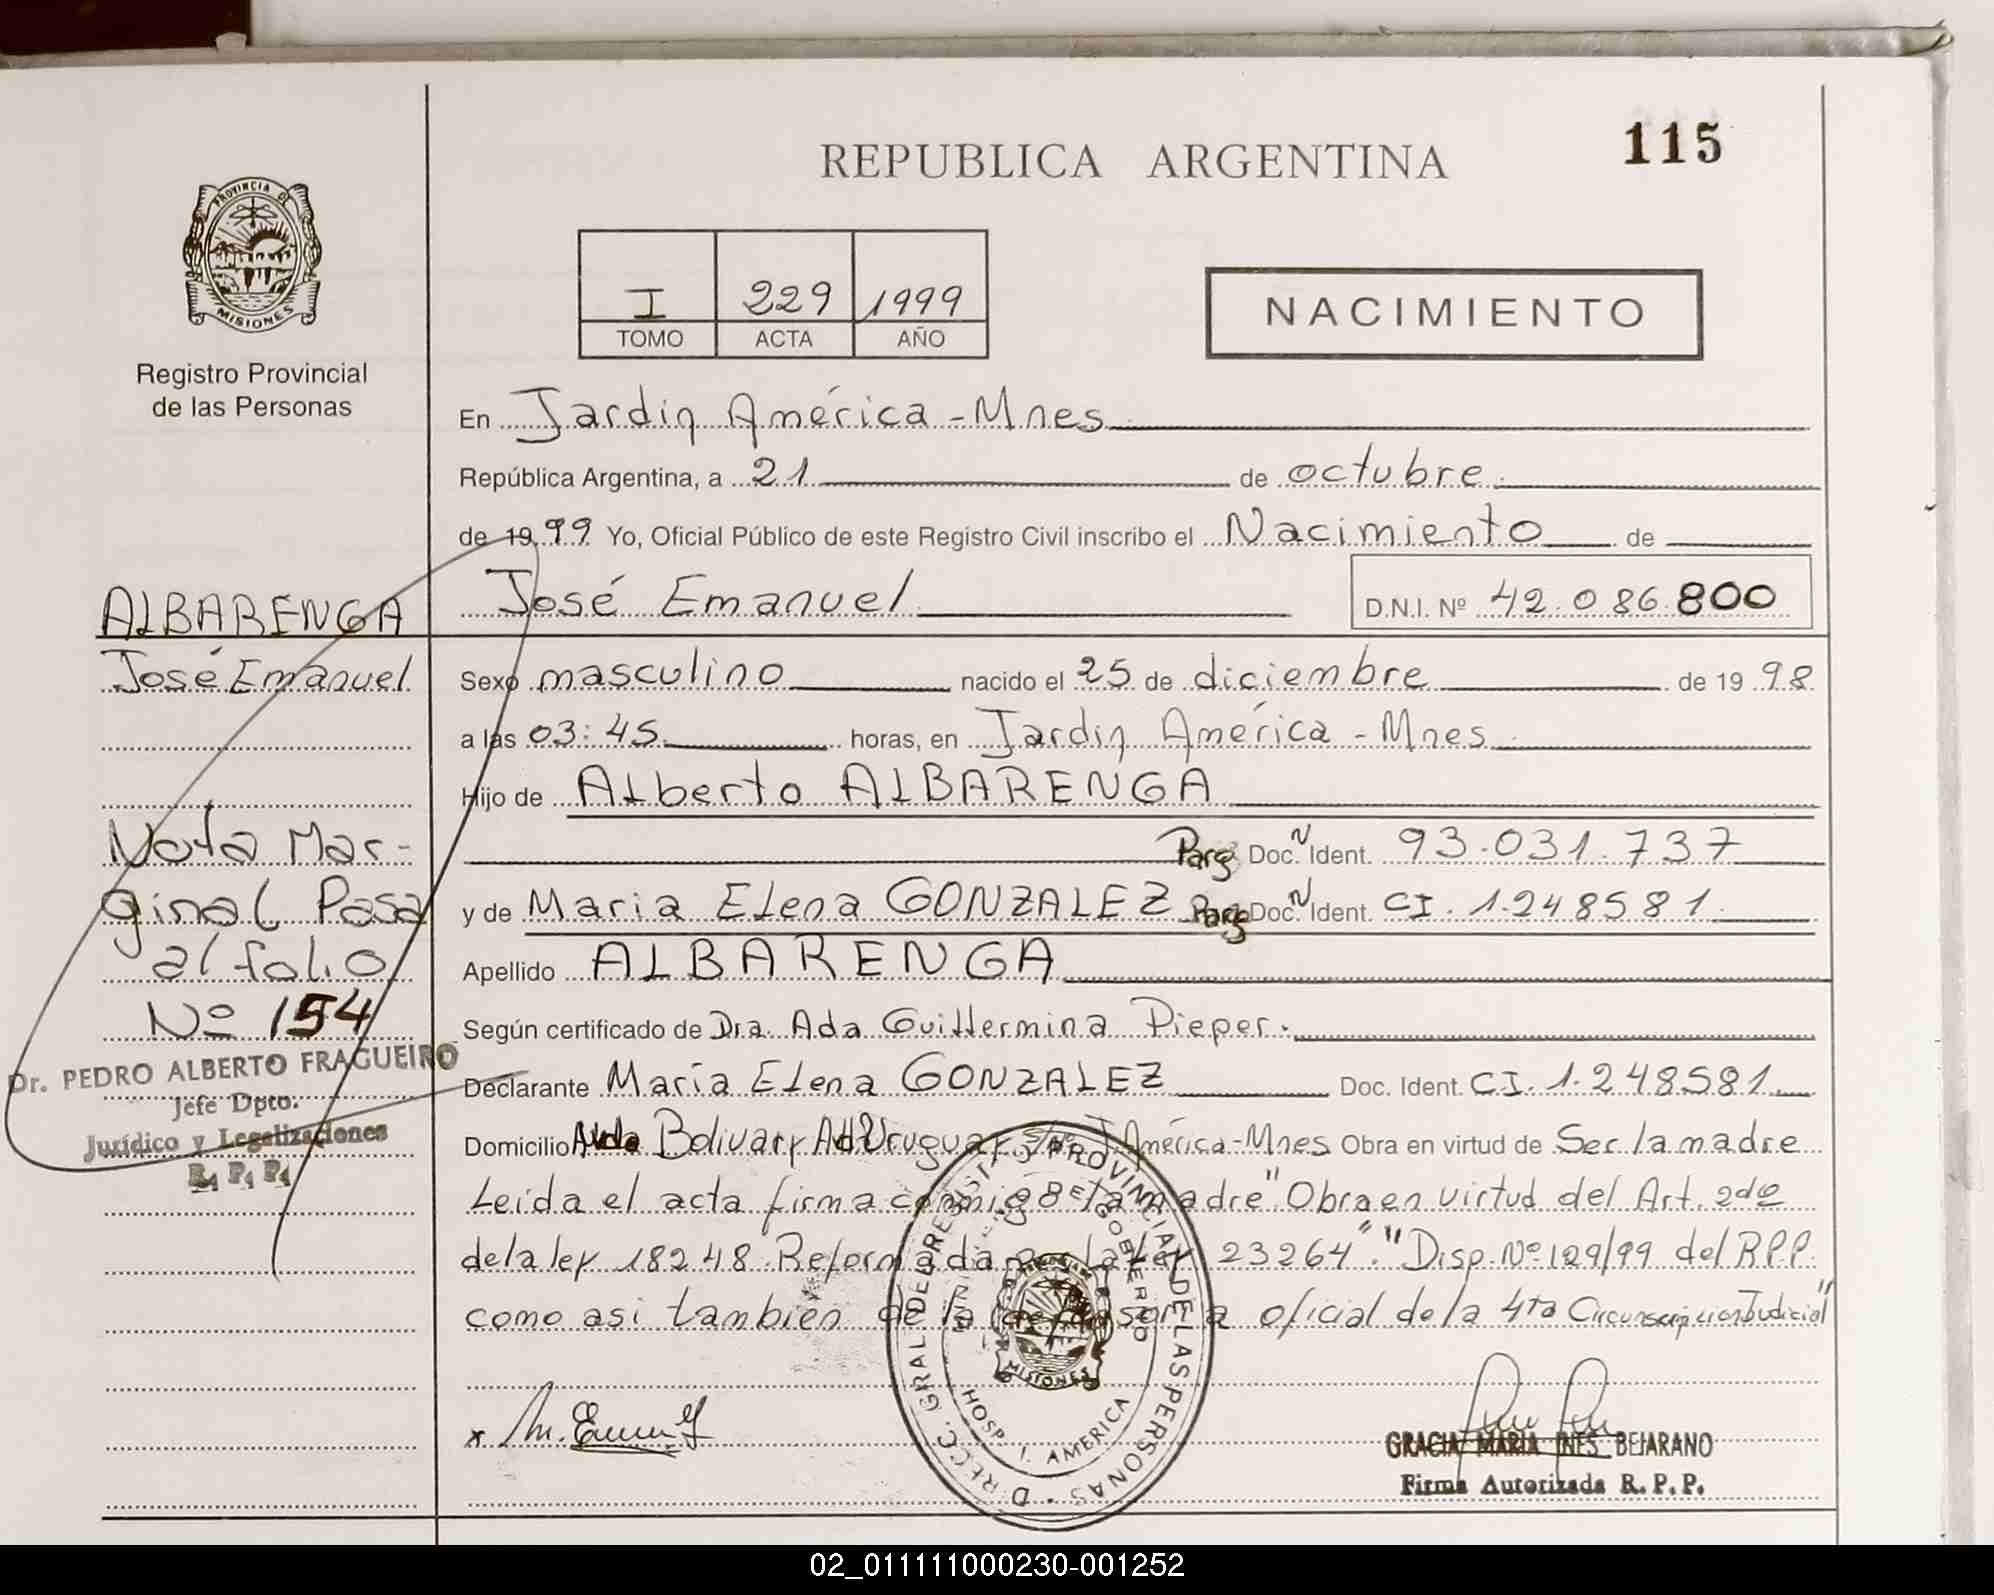 115
REPUBLICA ARGENTINA
PROVINCIA DE
MISIONES
Registro Provincial
de las Personas
I 229 1999
TOMO ACTA AÑO
NACIMIENTO
En Jardin América - Mnes
República Argentina, a 21 de octubre
de 1999 Yo, Oficial Público de este Registro Civil inscribo el Nacimiento de
José Emanuel D.N.I. Nº 42.086.800
ALBARENGA
José Emanuel
Sexo masculino nacido el 25 de diciembre de 1998
a las 03:45 horas, en Jardin América - Mnes
Hijo de Alberto ALBARENGA
Parg Doc. Ident. 93.031.737
y de Maria Elena GONZALEZ Parg Doc. Ident. CI. 1.248581
Apellido ALBARENGA
Según certificado de Dra. Ada Guillermina Pieper.
Declarante Maria Elena GONZALEZ Doc. Ident. CI. 1.248581
Domicilio Avda Bolivar y Uruguay S/Nº J. América-Mnes Obra en virtud de Ser la madre
Leida el acta firma conmigo la madre" Obra en virtud del Art. 2do
de la ley 18248 Reformada por la Ley 23264". "Disp. Nº 129/99 del R.P.P.
como asi tambien de la defensoria oficial de la 4ta Circunscripcion Judicial"
Nota Mar-
ginal Pasa
al folio
Nº 154
Dr. PEDRO ALBERTO FRAGUEIRO
Jefe Dpto.
Jurídico y Legalizaciones
R. P. P.
DIRECC. GRAL. DEL REGISTRO PROVINCIAL DE LAS PERSONAS
MINISTERIO DE GOBIERNO
MISIONES
HOSP. J. AMERICA
GRACIA MARIA INES BEJARANO
Firma Autorizada R. P. P.
02_011111000230-001252